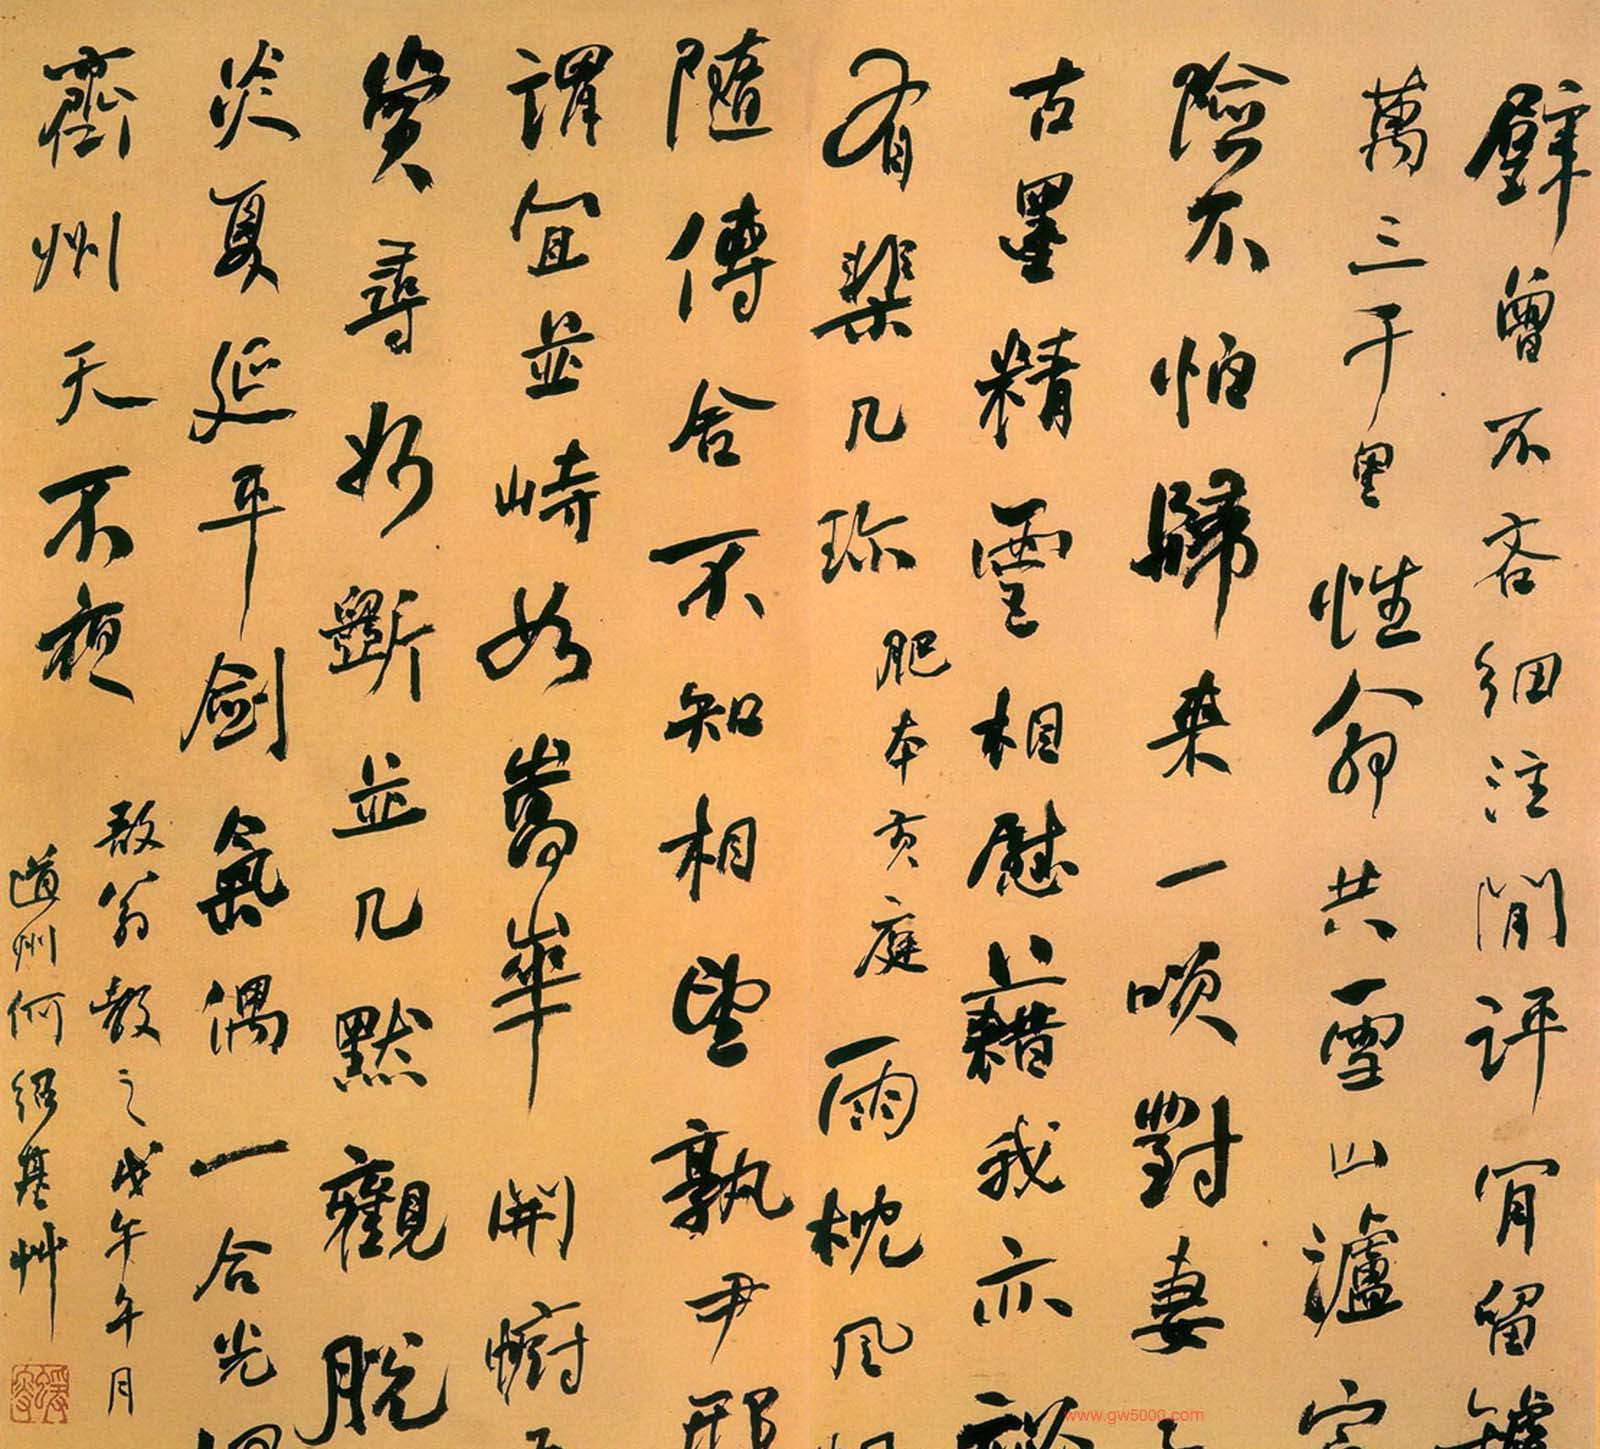 璧曾不吝細注閒評肎留
萬三千里性命共一雪山瀘
險不怕歸來一嗅對妻
古墨精靈相慰藉我亦
有棐几珍肥本黃庭雨枕風
隨傳舍不知相望孰尹邢
謂宜並峙如嵩華開幮
賞尋如斷並几默觀脫
炎夏延平劍氣偶一合光
齊州天不夜
敖翁教之戊午午月
道州何紹基艸
www.gw5000.com